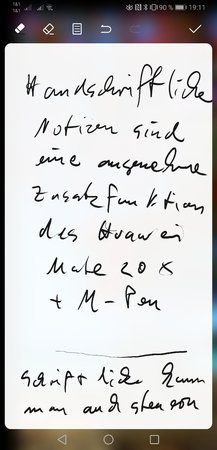 19:11
90 %
Handschriftliche
Notizen sind
eine angenehme
Zusatzfunktion
des Huawei
Mate 20 X
+ M-Pen
schriftliche kann
man auch